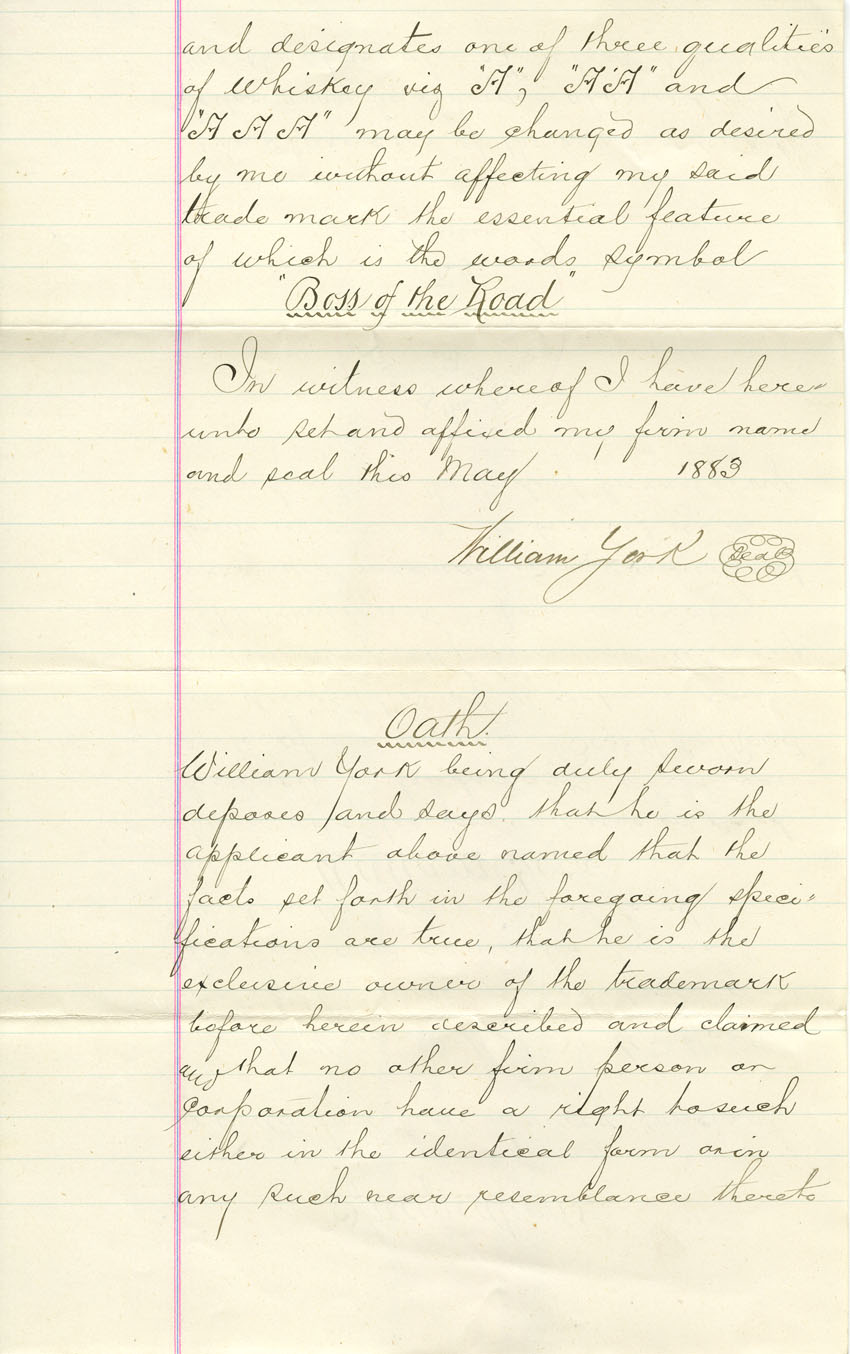 and designates one of three qualities
of whiskey viz "A", "AA" and
"AAA" may be changed as desired
by me without affecting my said
trade mark the essential feature
of which is the words symbol
"Boss of the Road"
In witness whereof I have here-
unto set and affixed my firm name
and seal this May 1883
William York Seal
Oath.
William York being duly sworn
deposes and says that he is the
applicant above named that the
facts set forth in the foregoing speci-
fications are true, that he is the
exclusive owner of the trademark
before herein described and claimed
and that no other firm person or
Corporation have a right to such
either in the identical form or in
any such near resemblance thereto